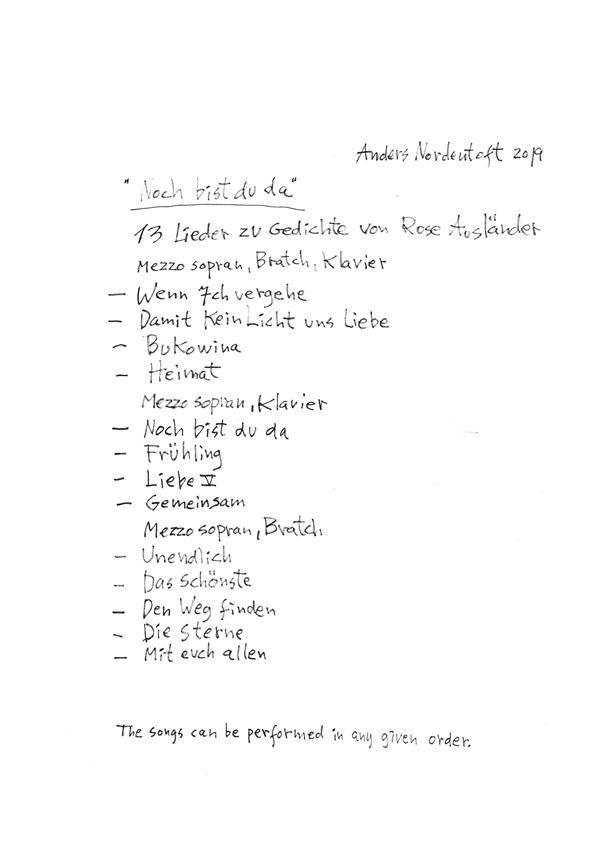 Anders Nordentoft 2019
"Noch bist du da"
13 Lieder zu Gedichte von Rose Ausländer
Mezzo sopran, Bratch, Klavier
– Wenn Ich vergehe
– Damit Kein Licht uns Liebe
– Bukowina
– Heimat
Mezzo sopran, Klavier
– Noch bist du da
– Frühling
– Liebe V
– Gemeinsam
Mezzo sopran, Bratch
– Unendlich
– Das schönste
– Den Weg finden
– Die Sterne
– Mit euch allen
The songs can be performed in any given order.